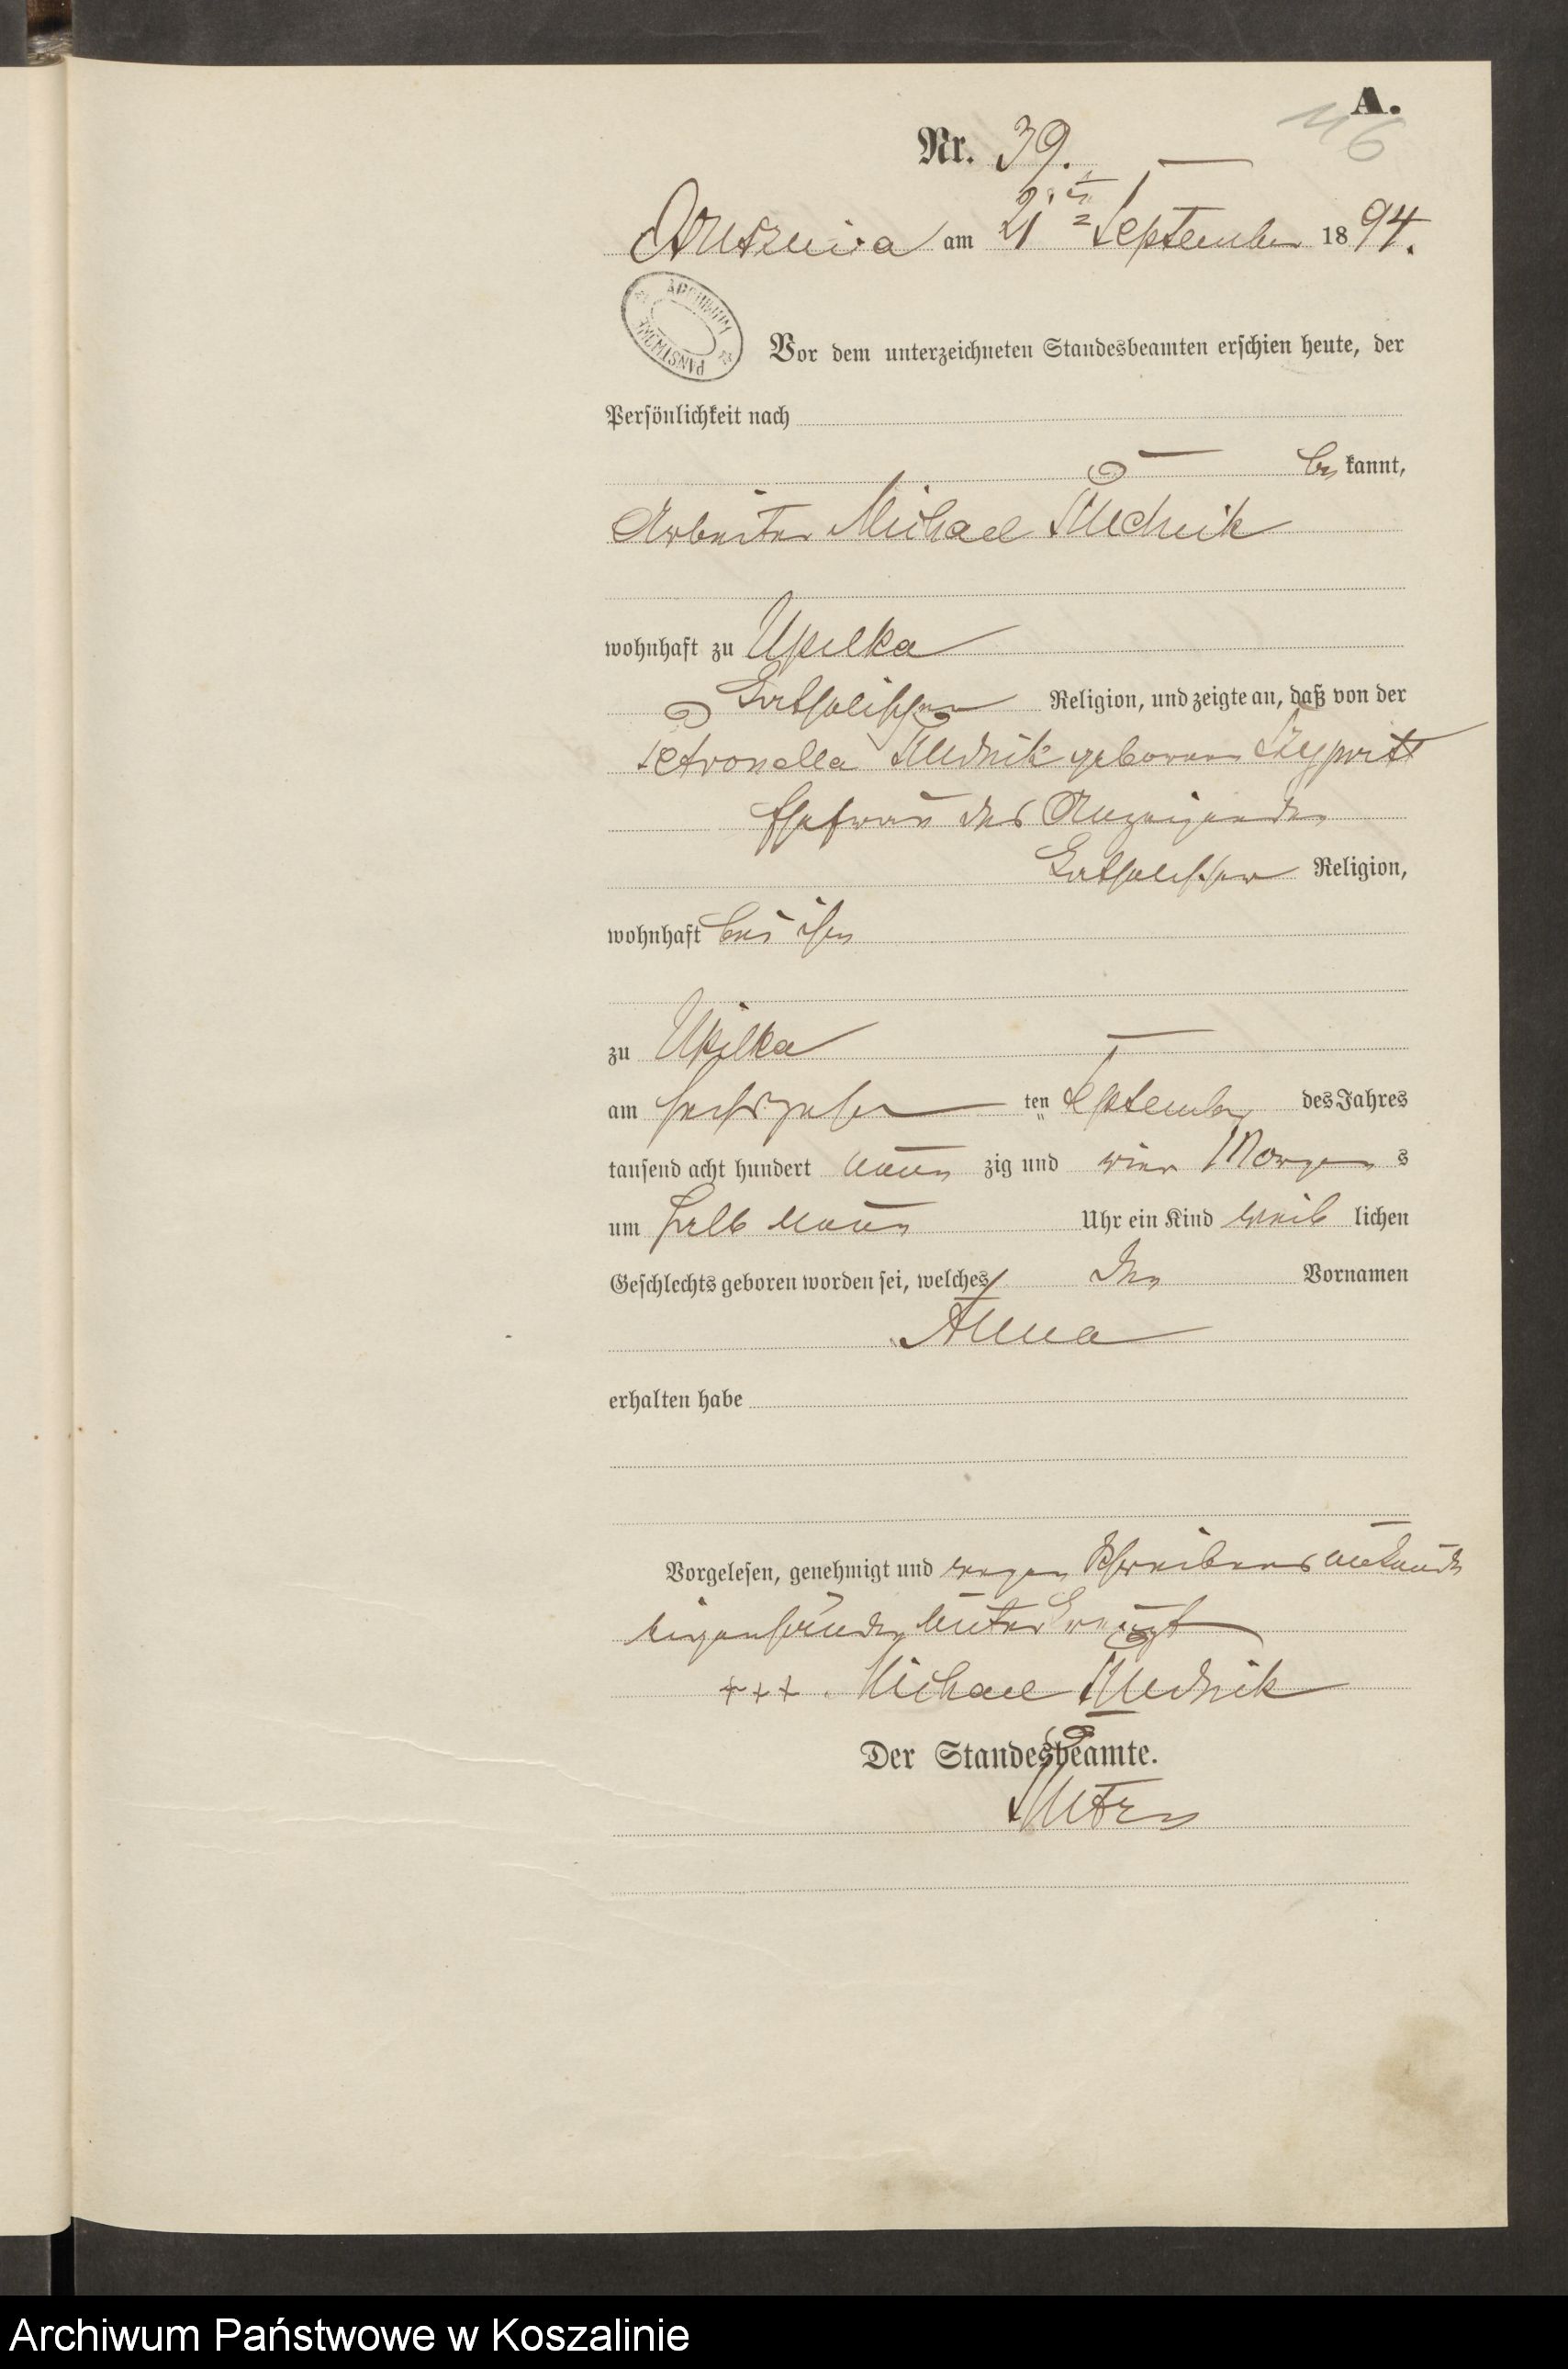 A.
116
Nr. 39.
am 21ten September 1894.
ARCHIWUM PAŃSTWOWE
Vor dem unterzeichneten Standesbeamten erschien heute, der
Persönlichkeit nach
be kannt,
Arbeiter Michael Rudnik
wohnhaft zu Upilka
katholischer Religion, und zeigte an, daß von der
Petronella Rudnik geborene
Ehefrau des Anzeigenden
katholischer Religion,
wohnhaft bei ihm
zu Upilka
am sechszehn ten September des Jahres
tausend acht hundert neun zig und vier Morgens
um halb neun Uhr ein Kind weib lichen
Geschlechts geboren worden sei, welches den Vornamen
Anna
erhalten habe
Vorgelesen, genehmigt und wegen Schreibensunkunde
eigenhändig unterkreuzt
+++ Michael Rudnik
Der Standesbeamte.
Archiwum Państwowe w Koszalinie